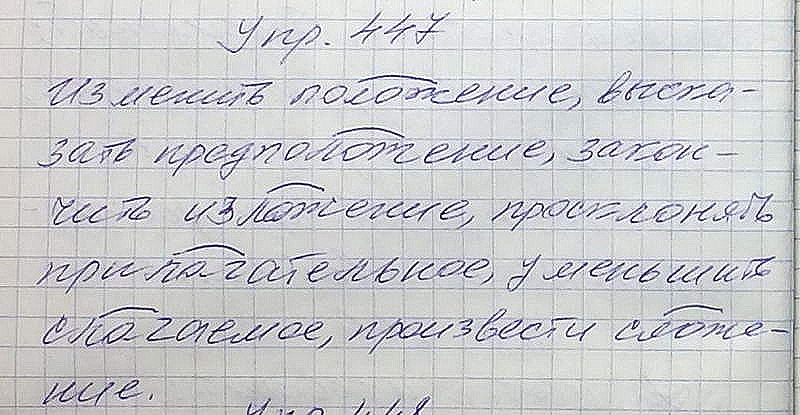 Упр. 447
Изменить положение, выска-
зать предположение, закон-
чить изложение, просклонять
прилагательное, уменьшить
слагаемое, произвести сложе-
ние.
Упр. 448